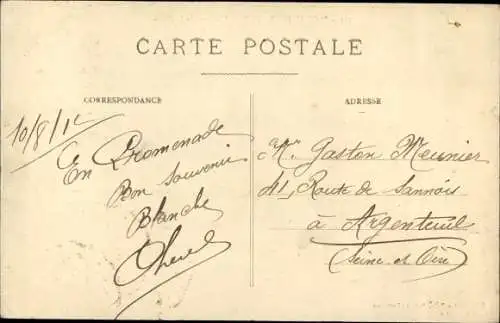 CARTE POSTALE
CORRESPONDANCE
ADRESSE
10/8/12
En Promenade
Bon Souvenir
Blanche
Gaston Meunier
41, Route de Sannois
à Argenteuil
(Seine et Oise)